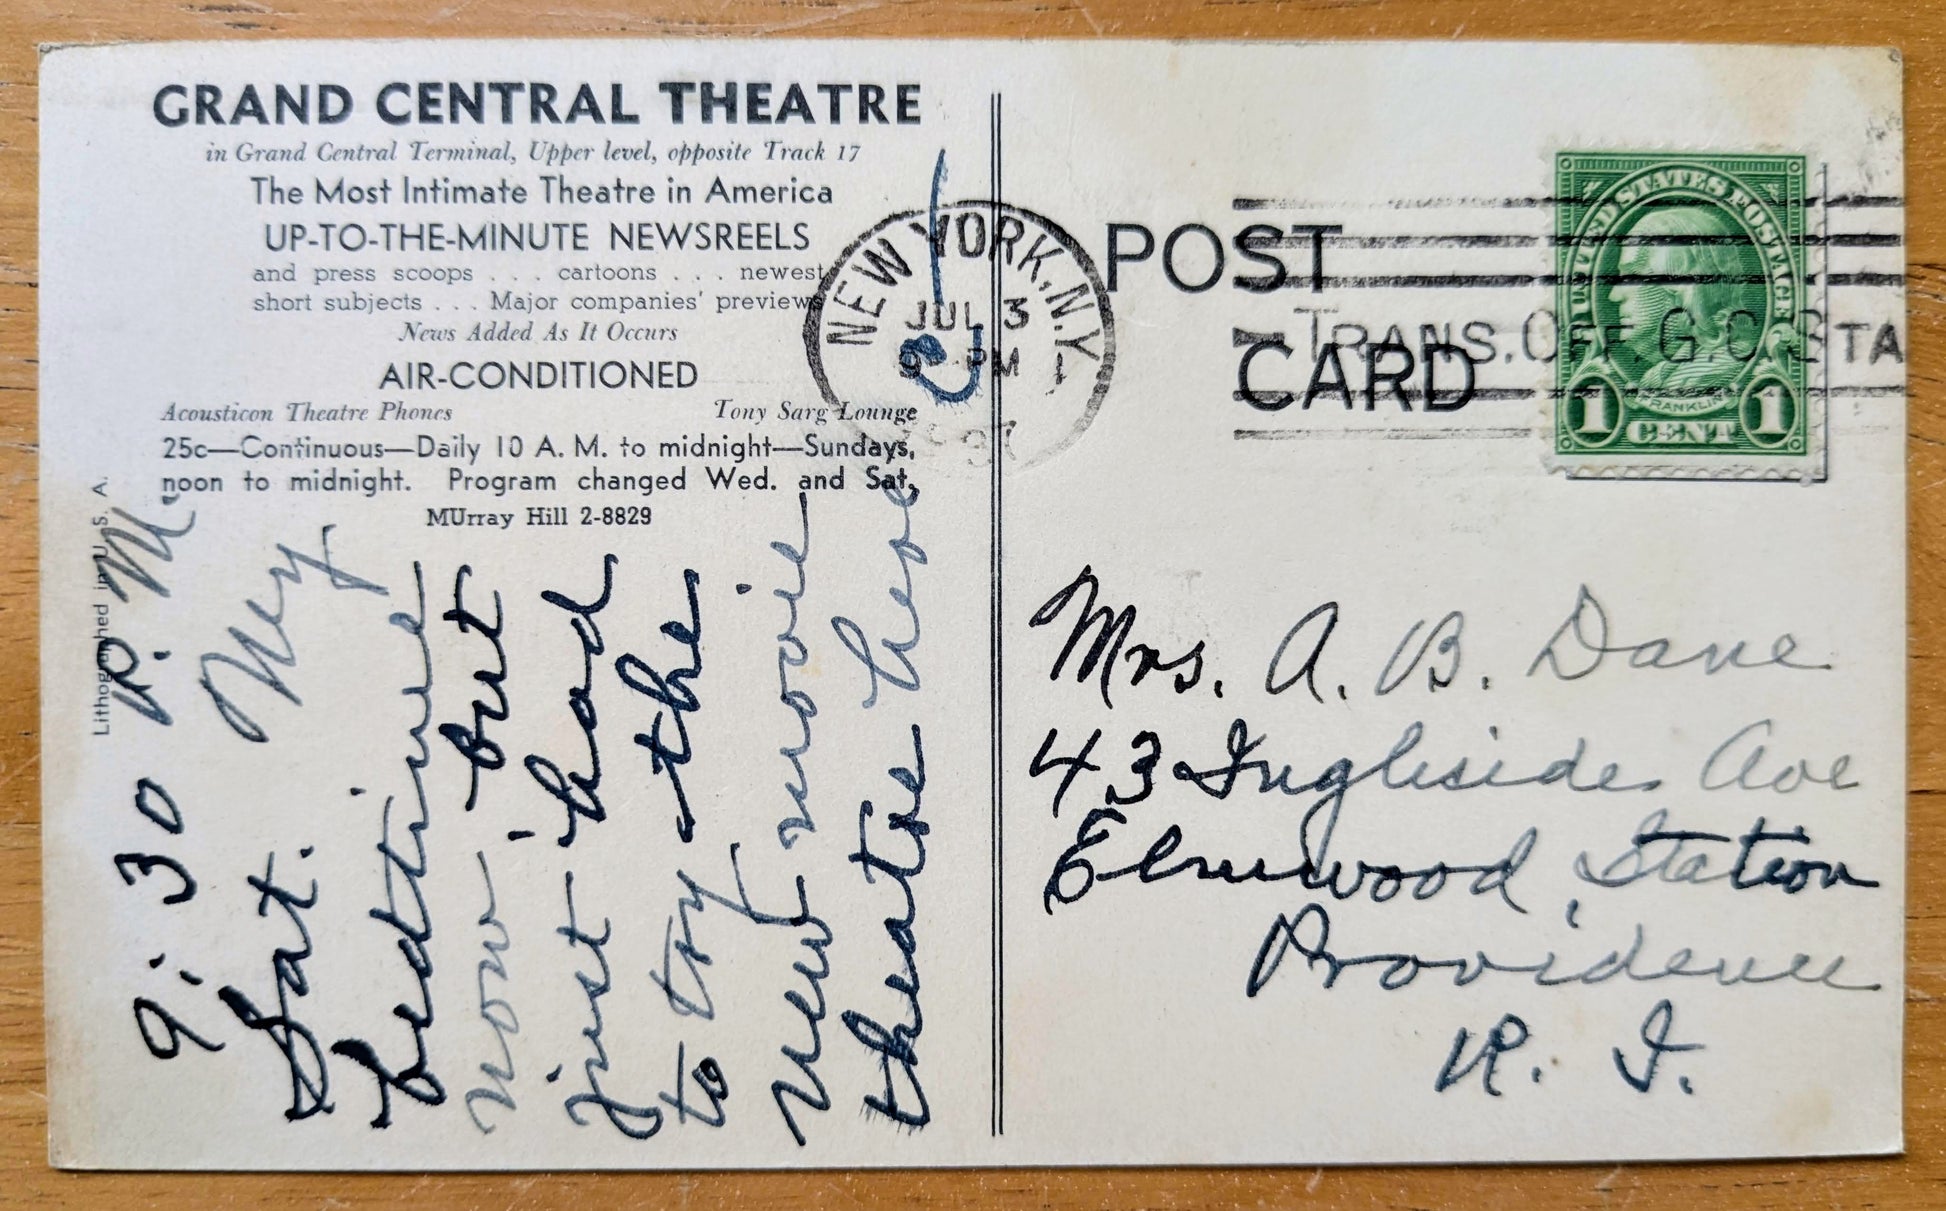 GRAND CENTRAL THEATRE
in Grand Central Terminal, Upper level, opposite Track 17
The Most Intimate Theatre in America
UP-TO-THE-MINUTE NEWSREELS
and press scoops . . . cartoons . . . newest
short subjects . . . Major companies' previews
News Added As It Occurs
AIR-CONDITIONED
Acousticon Theatre Phones Tony Sarg Lounge
25c—Continuous—Daily 10 A. M. to midnight—Sundays,
noon to midnight. Program changed Wed. and Sat.
MUrray Hill 2-8829
Lithographed in U. S. A.
9:30 P. M.
Sat. My
bedtime
now but
just had
to try the
new movie
theatre here
C
NEW YORK, N.Y.
JUL 3
9 PM
1937
TRANS. OFF. G.C. STA
POST
CARD
UNITED STATES POSTAGE
FRANKLIN
1 CENT 1
Mrs. A. B. Dane
43 Ingleside Ave
Elmwood Station
Providence
R. I.